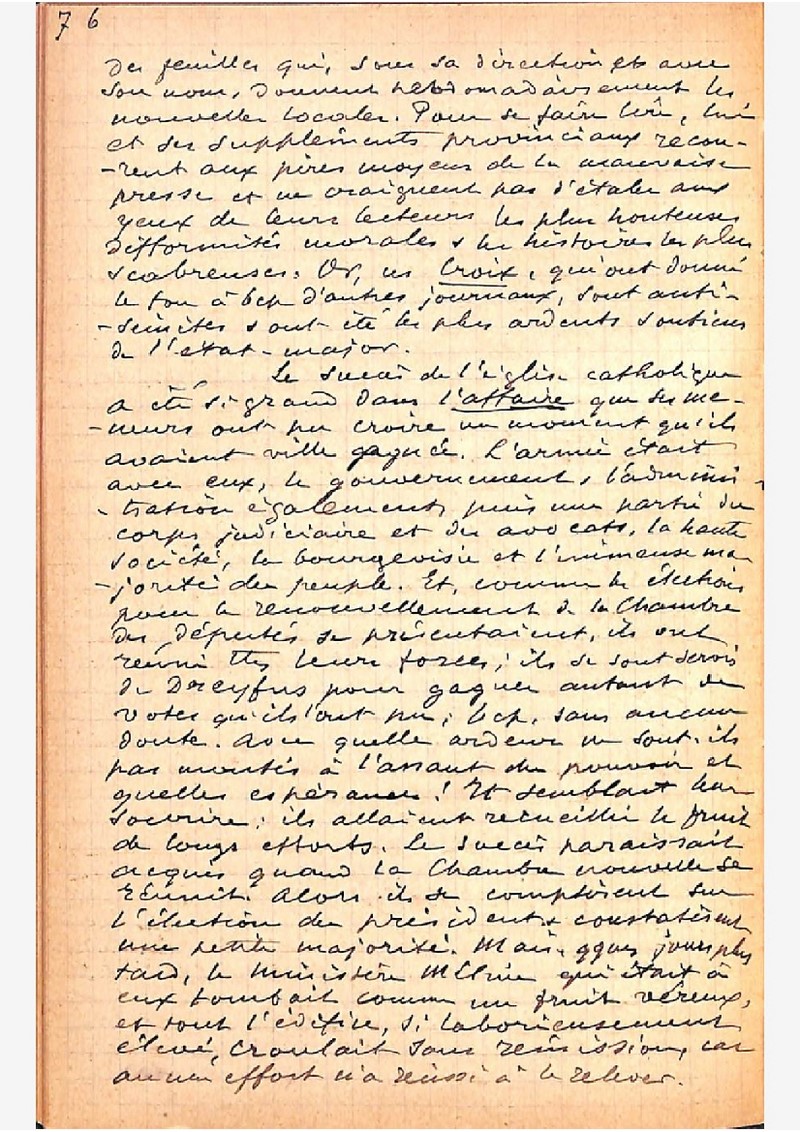 76
des feuilles qui, sous sa direction et avec
son nom, donnent hebdomadairement les
nouvelles locales. Pour se faire lire, lui
et ses suppléments provinciaux recou-
-rent aux pires moyens de la mauvaise
presse et ne craignent pas d'étaler aux
yeux de leurs lecteurs les plus honteuses
difformités morales & les histoires les plus
scabreuses. Or, ces Croix, qui ont donné
le ton à bcp d'autres journaux, sont anti-
-sémites & ont été les plus ardents soutiens
de l'état-major.
Le succès de l'église catholique
a été si grand dans l'affaire que ses me-
-neurs ont pu croire un moment qu'ils
avaient ville gagnée. L'armée était
avec eux, le gouvernement, l'adminis-
-tration également, puis une partie du
corps judiciaire et des avocats, la haute
société, la bourgeoisie et l'immense ma
-jorité du peuple. Et, comme les élections
pour le renouvellement de la Chambre
des députés se présentaient, ils ont
réuni ttes leurs forces; ils se sont servis
de Dreyfus pour gagner autant de
votes qu'ils ont pu; bcp, sans aucun
doute. Avec quelle ardeur ne sont-ils
pas montés à l'assaut du pouvoir et
quelles espérances! Tt semblait leur
sourire; ils allaient recueillir le fruit
de longs efforts. Le succès paraissait
acquis quand la Chambre nouvelle se
réunit. Alors ils se comptèrent sur
l'élection du président & constatèrent
une petite majorité. Mais qques jours plus
tard, le ministère Méline qui était à
eux tombait comme un fruit véreux,
et tout l'édifice, si laborieusement
élevé, croulait sans rémission, car
aucun effort n'a réussi à le relever.